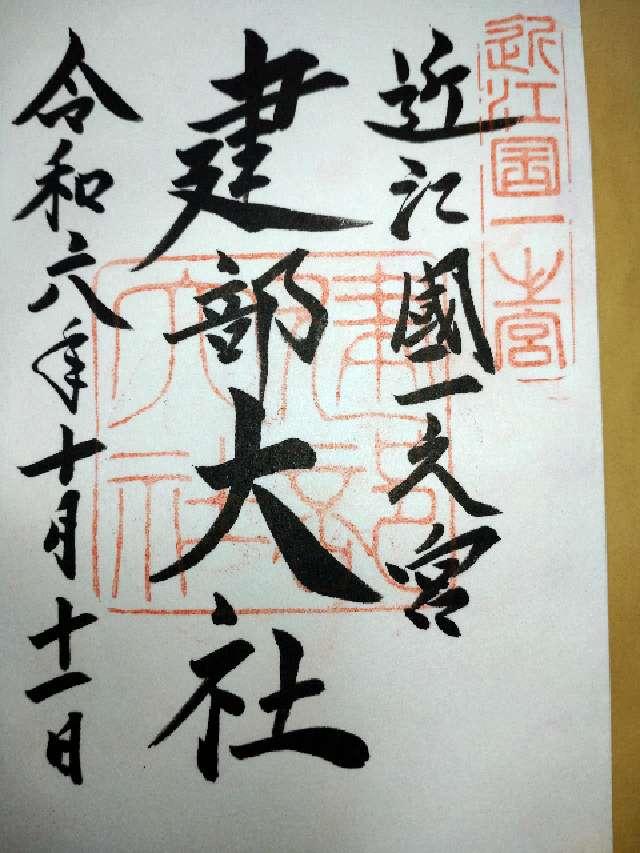 近江国一之宮
近江國一之宮
建部大社
建部大社
令和六年十月十一日